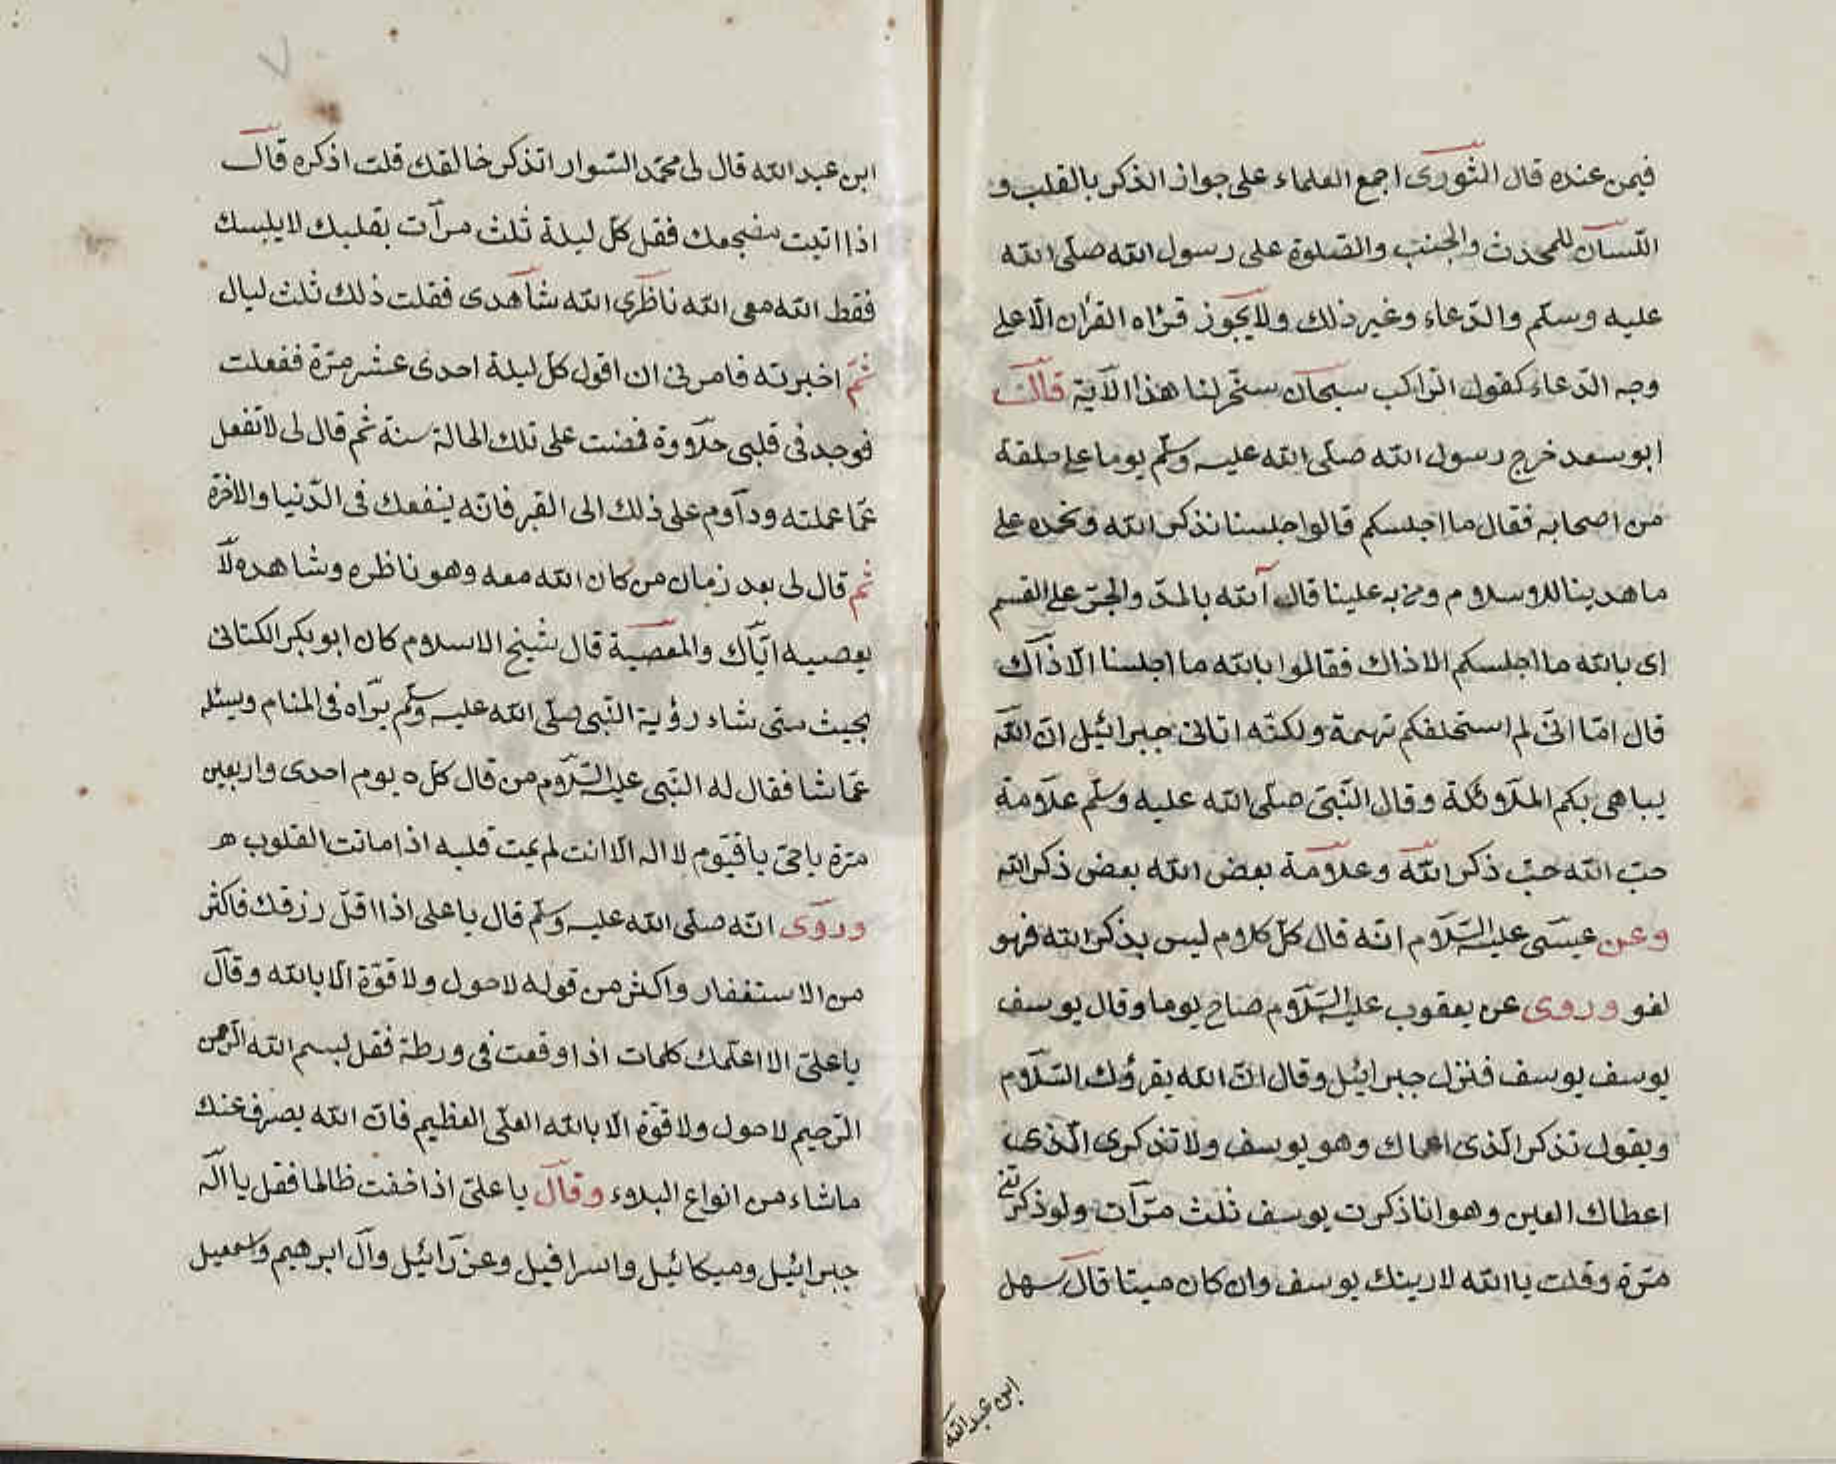 فيمن عنده قال الثورى اجمع العلماء على جواز الذكر بالقلب و
اللسان للمحدث والجنب والصلوة على رسول الله صلى الله
عليه وسلم والدّعاء وغير ذلك ولا يجوز قراه القرأن الّا على
وجه الدّعاء كقول الراكب سبحان سخّر لنا هذا الآية قالت
ابو سعد خرج رسول الله صلى الله عليه وسلّم يوما على حلقة
من اصحابه فقال ما اجلسكم قالوا جلسنا نذكر الله ونحمده على
ما هدينا للاسلام ومن به علينا قال آلله بالمدّ والجرّ على القسم
اى بالله ما اجلسكم الا ذاك فقالوا بالله ما اجلسنا الّا ذاك
قال امّا انّى لم استحلفكم تهمة ولكنّه اتانى جبرائيل انّ الله
يباهى بكم الملائكة وقال النّبىّ صلّى الله عليه وسلّم علامة
حبّ الله حبّ ذكر الله وعلامة بعض الله بعض ذكر الله
وعن عيسى عليه السّلام انّه قال كلّ كلام ليس بذكر الله فهو
لغو وروى عن يعقوب عليه السّلام صاح يوما وقال يوسف
يوسف يوسف فنزل جبرائيل وقال انّ الله يقرؤك السّلام
ويقول تذكر الّذى اعماك وهو يوسف ولا تذكرى الّذى
اعطاك العين وهو انا ذكرت يوسف ثلث مرّات ولو ذكرتنى
مرّة وقلت يا الله لارينك يوسف وان كان ميتا قال سهل
ابن عبد الله
ابن عبد الله قال لى محمّد السّوار اتذكر خالقك قلت اذكره قال
اذا اتيت مضجعك فقل كلّ ليلة ثلث مرآت بقلبك لا يلبسك
فقط الله معى الله ناظرى الله شاهدى فقلت ذلك ثلث ليال
ثمّ اخبرته فامرنى ان اقول كلّ ليلة احدى عشر مرّة ففعلت
فوجد فى قلبى حلاوة فمضت على تلك الحالة سنة ثم قال لى لا تفعل
عمّا عملته وداوم على ذلك الى القبر فانّه ينفعك فى الدّنيا والاخرة
ثم قال لى بعد زمان من كان الله معه وهو ناظره وشاهده لا
يعصيه ايّاك والمعصية قال شيخ الاسلام كان ابو بكر الكتانى
بحيث متى شاء رؤية النّبى صلّى الله عليه وسلّم يراه فى المنام ويسئله
عمّا شا فقال له النّبى عليه السّلام من قال كل ه يوم احدى واربعين
مرّة يا حىّ يا قيّوم لا اله الّا انت لم يمت قلبه اذا ماتت القلوب هـ
وروى انّه صلّى الله عليه وسلّم قال يا على اذا اقلّ رزقك فاكثر
من الاستغفار واكثر من قوله لا حول ولا قوّة الّا بالله وقال
يا علىّ الا اعلّمك كلمات اذا وقعت فى ورطة فقل بسم الله الرحمن
الرّحيم لا حول ولا قوّة الّا بالله العلّى العظيم فانّ الله يصرف عنك
ما شاء من انواع البلاء وقال يا علىّ اذا خفت ظالما فقل يا اله
جبرائيل وميكائيل واسرافيل وعزرائيل وآل ابرهيم واسمعيل